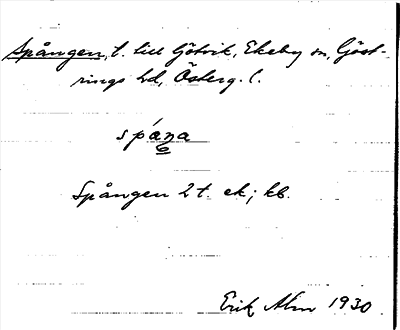 Spången, t. till Götvik, Ekeby sn, Göst-
rings hd, Österg. l.
spáŋa
Spången 2 t. ek; kb.
Erik Alm 1930